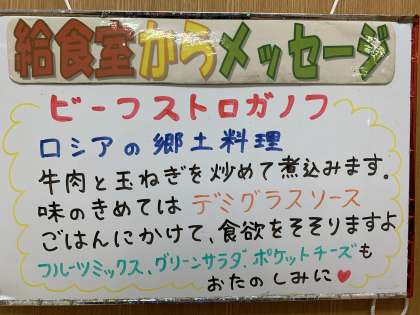 給食室からメッセージ
ビーフストロガノフ
ロシアの郷土料理
牛肉と玉ねぎを炒めて煮込みます。
味のきめては デミグラスソース
ごはんにかけて、食欲をそそりますよ
フルーツミックス、グリーンサラダ、ポケットチーズも
おたのしみに♥